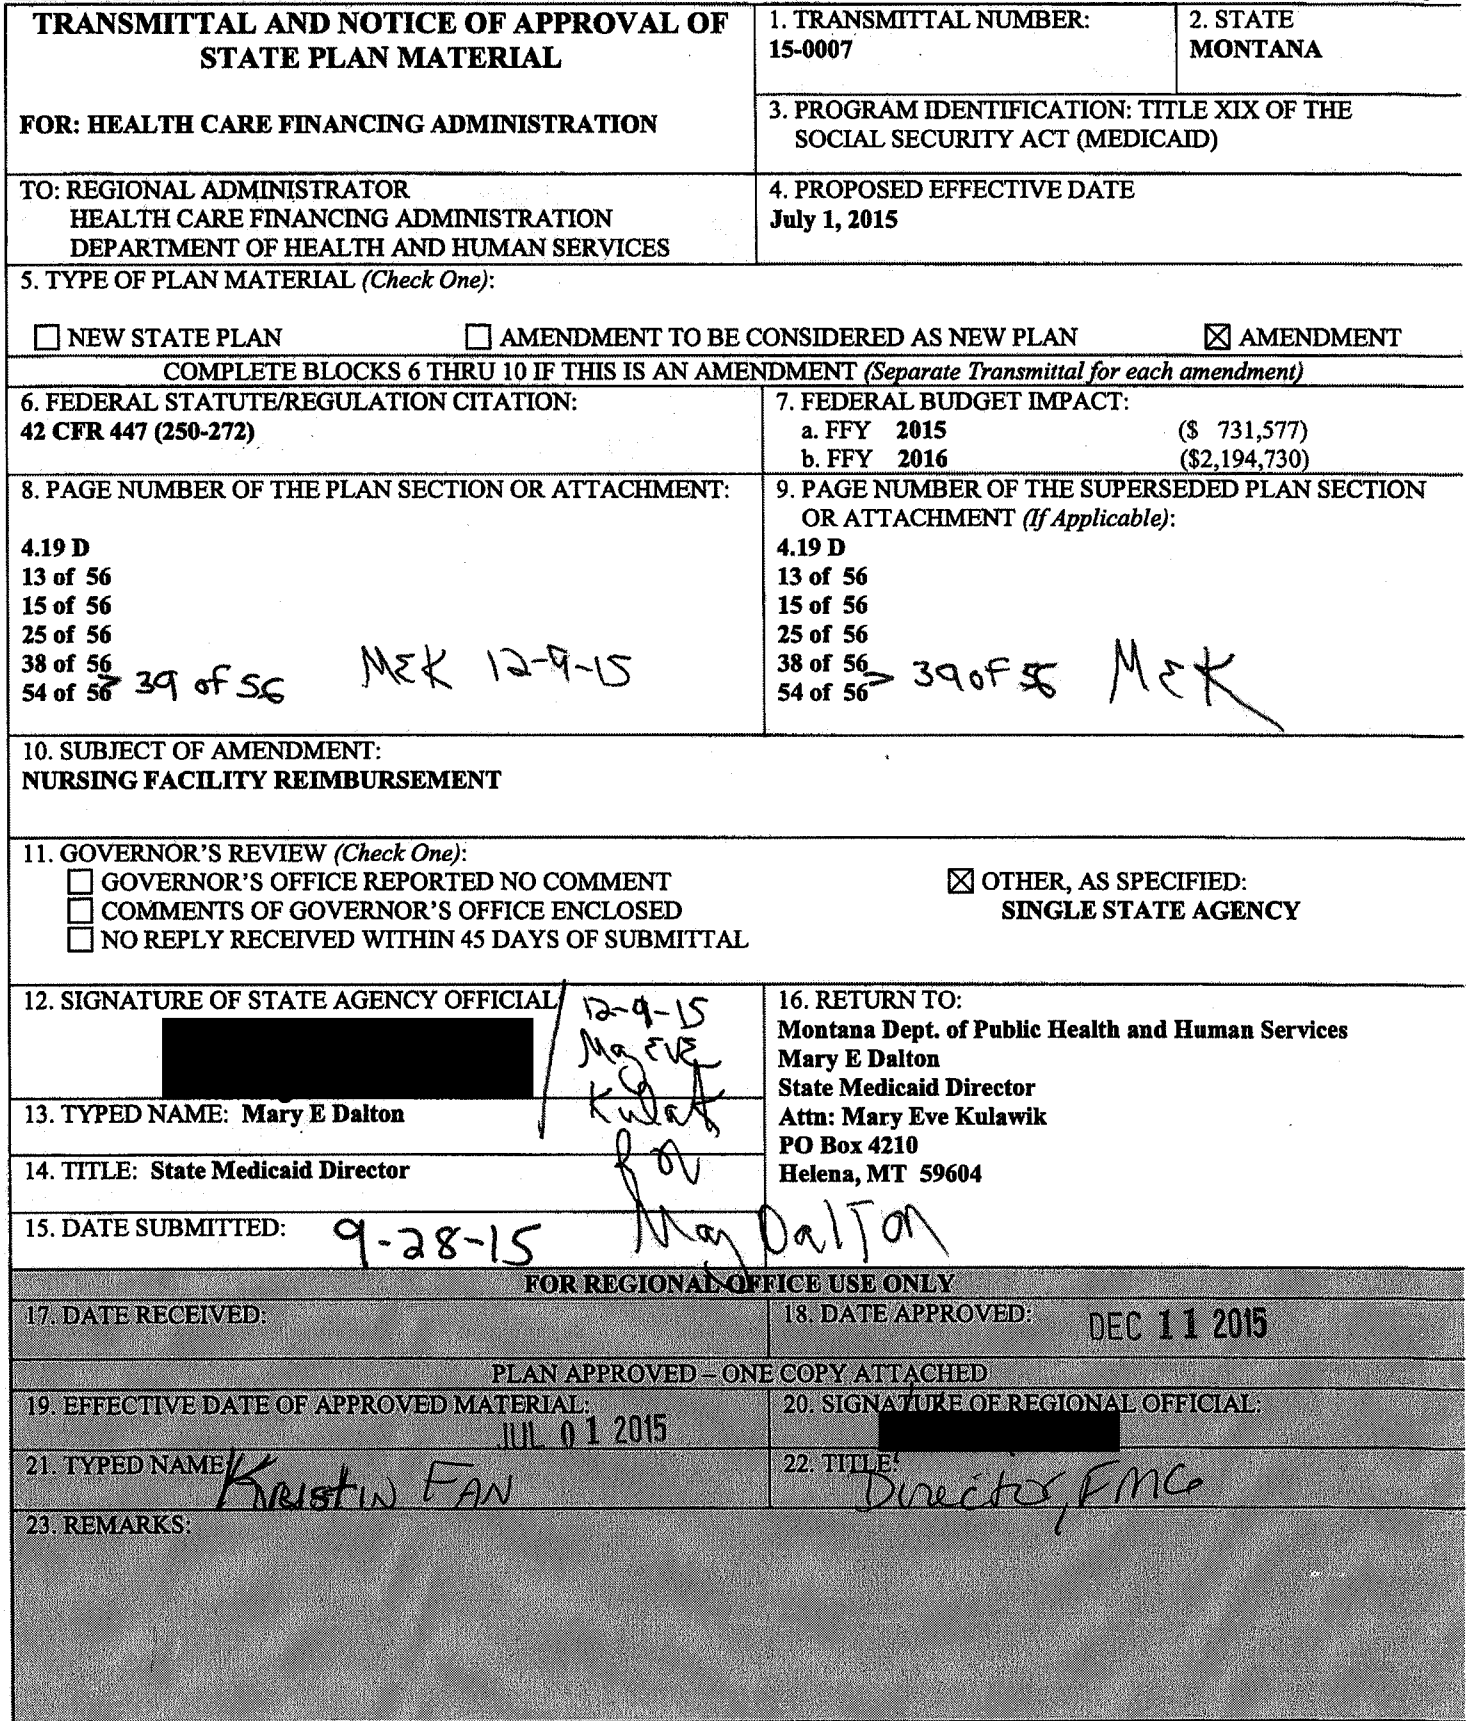 TRANSMITTAL AND NOTICE OF APPROVAL OF
STATE PLAN MATERIAL
FOR: HEALTH CARE FINANCING ADMINISTRATION
1. TRANSMITTAL NUMBER:
15-0007
2. STATE
MONTANA
3. PROGRAM IDENTIFICATION: TITLE XIX OF THE
SOCIAL SECURITY ACT (MEDICAID)
TO: REGIONAL ADMINISTRATOR
HEALTH CARE FINANCING ADMINISTRATION
DEPARTMENT OF HEALTH AND HUMAN SERVICES
4. PROPOSED EFFECTIVE DATE
July 1, 2015
5. TYPE OF PLAN MATERIAL (Check One):
☐ NEW STATE PLAN ☐ AMENDMENT TO BE CONSIDERED AS NEW PLAN ☒ AMENDMENT
COMPLETE BLOCKS 6 THRU 10 IF THIS IS AN AMENDMENT (Separate Transmittal for each amendment)
6. FEDERAL STATUTE/REGULATION CITATION:
42 CFR 447 (250-272)
7. FEDERAL BUDGET IMPACT:
a. FFY 2015 ($ 731,577)
b. FFY 2016 ($2,194,730)
8. PAGE NUMBER OF THE PLAN SECTION OR ATTACHMENT:
4.19 D
13 of 56
15 of 56
25 of 56
38 of 56
54 of 56 > 39 of 56 MEK 12-9-15
9. PAGE NUMBER OF THE SUPERSEDED PLAN SECTION
OR ATTACHMENT (If Applicable):
4.19 D
13 of 56
15 of 56
25 of 56
38 of 56
54 of 56 > 39 of 56 MEK
10. SUBJECT OF AMENDMENT:
NURSING FACILITY REIMBURSEMENT
11. GOVERNOR'S REVIEW (Check One):
☐ GOVERNOR'S OFFICE REPORTED NO COMMENT
☐ COMMENTS OF GOVERNOR'S OFFICE ENCLOSED
☐ NO REPLY RECEIVED WITHIN 45 DAYS OF SUBMITTAL
☒ OTHER, AS SPECIFIED:
SINGLE STATE AGENCY
12. SIGNATURE OF STATE AGENCY OFFICIAL
12-9-15
Eve
for
Dalton
13. TYPED NAME: Mary E Dalton
14. TITLE: State Medicaid Director
15. DATE SUBMITTED: 9-28-15
16. RETURN TO:
Montana Dept. of Public Health and Human Services
Mary E Dalton
State Medicaid Director
Attn: Mary Eve Kulawik
PO Box 4210
Helena, MT 59604
FOR REGIONAL OFFICE USE ONLY
17. DATE RECEIVED:
18. DATE APPROVED: DEC 11 2015
PLAN APPROVED – ONE COPY ATTACHED
19. EFFECTIVE DATE OF APPROVED MATERIAL:
JUL 01 2015
20. SIGNATURE OF REGIONAL OFFICIAL:
21. TYPED NAME: Kristin Fan
22. TITLE: Director, FMG
23. REMARKS: